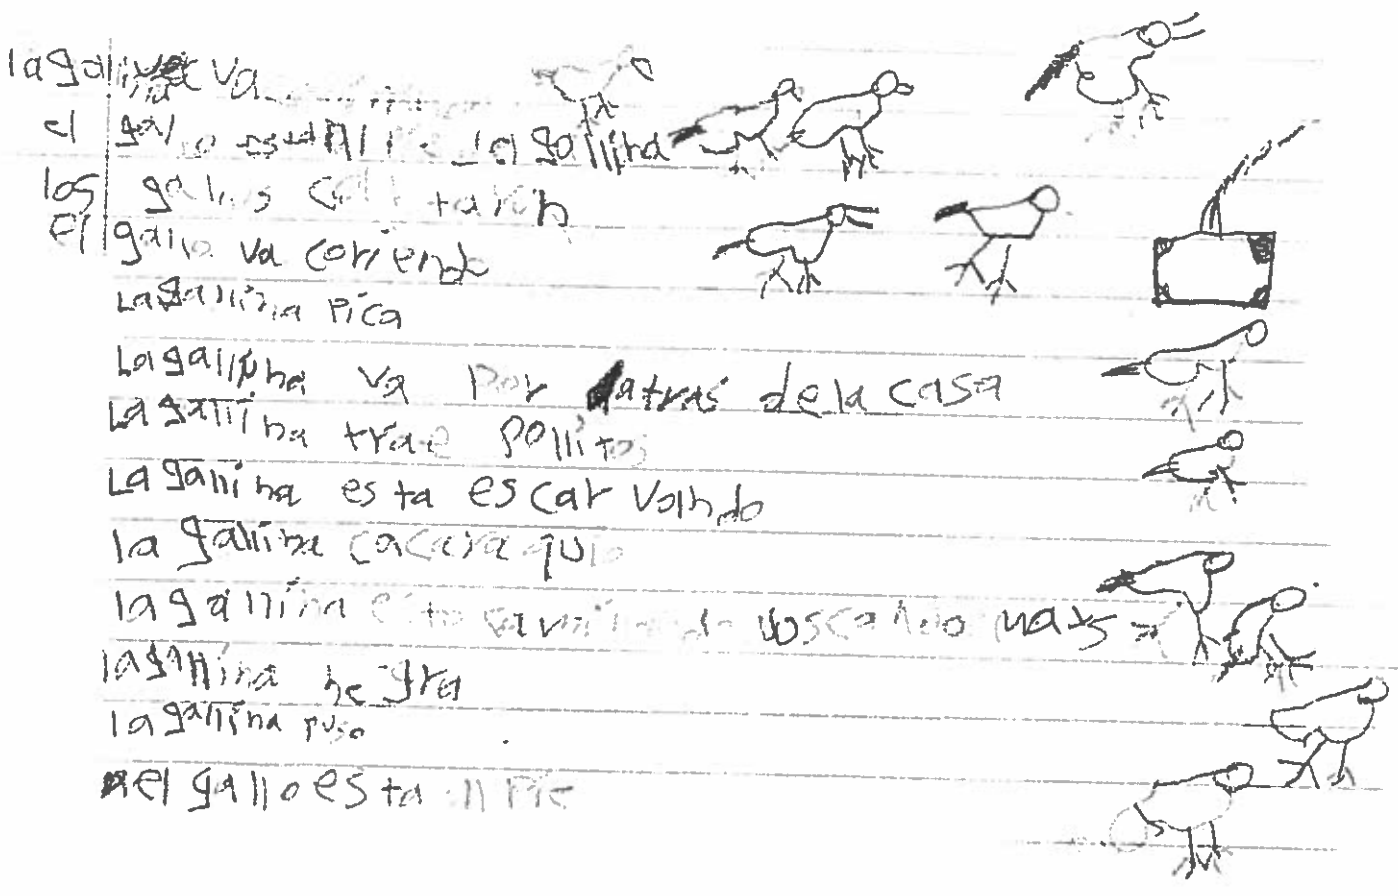 la gallina va
el gallo esta la gallina
los gallos cantaron
El gallo va coriendo
La gallina pica
La gallina va por atras de la casa
La gallina trae pollitos
La gallina esta escarvando
la gallina cacaraquio
la gallina voscando mays
la gallina negra
la gallina puso
el gallo esta